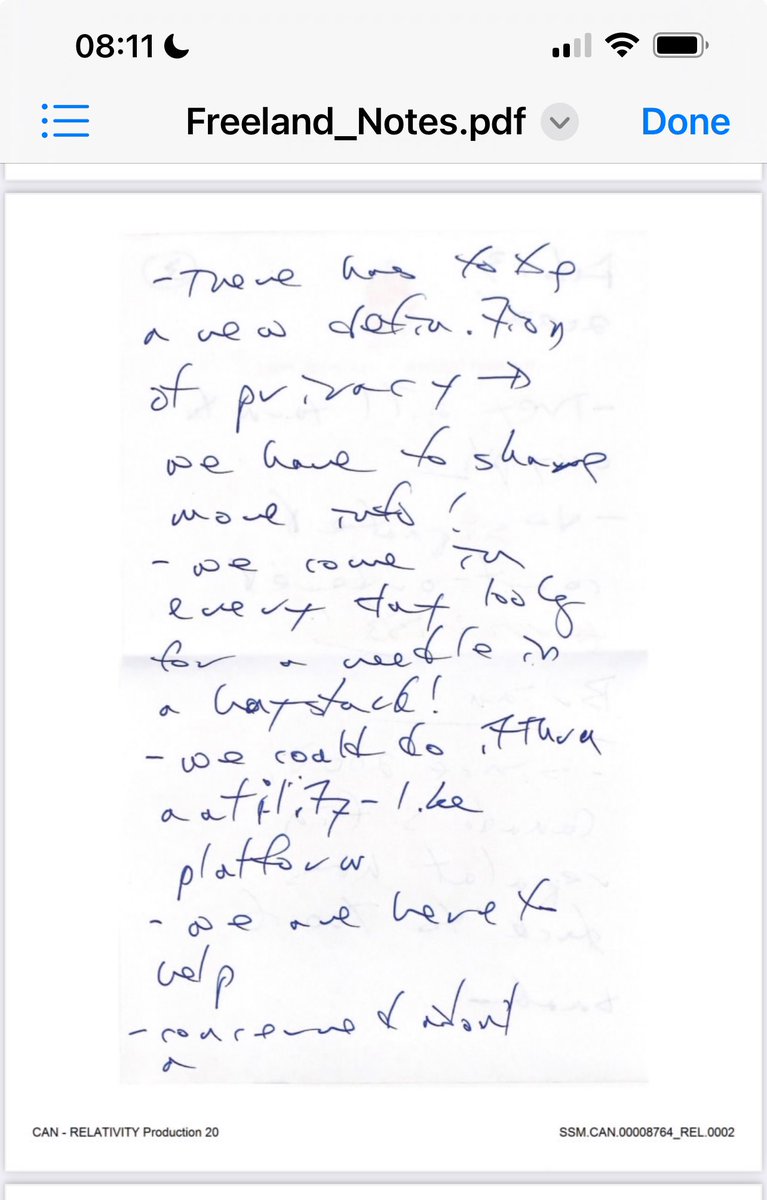 08:11
Freeland_Notes.pdf
Done
- There has to be
a new definition
of privacy →
we have to share
more info!
- we come in
every day looking
for a needle in
a haystack!
- we could do it thru
a utility-like
platform
- we are here to
help
- concerned about
a
CAN - RELATIVITY Production 20
SSM.CAN.00008764_REL.0002